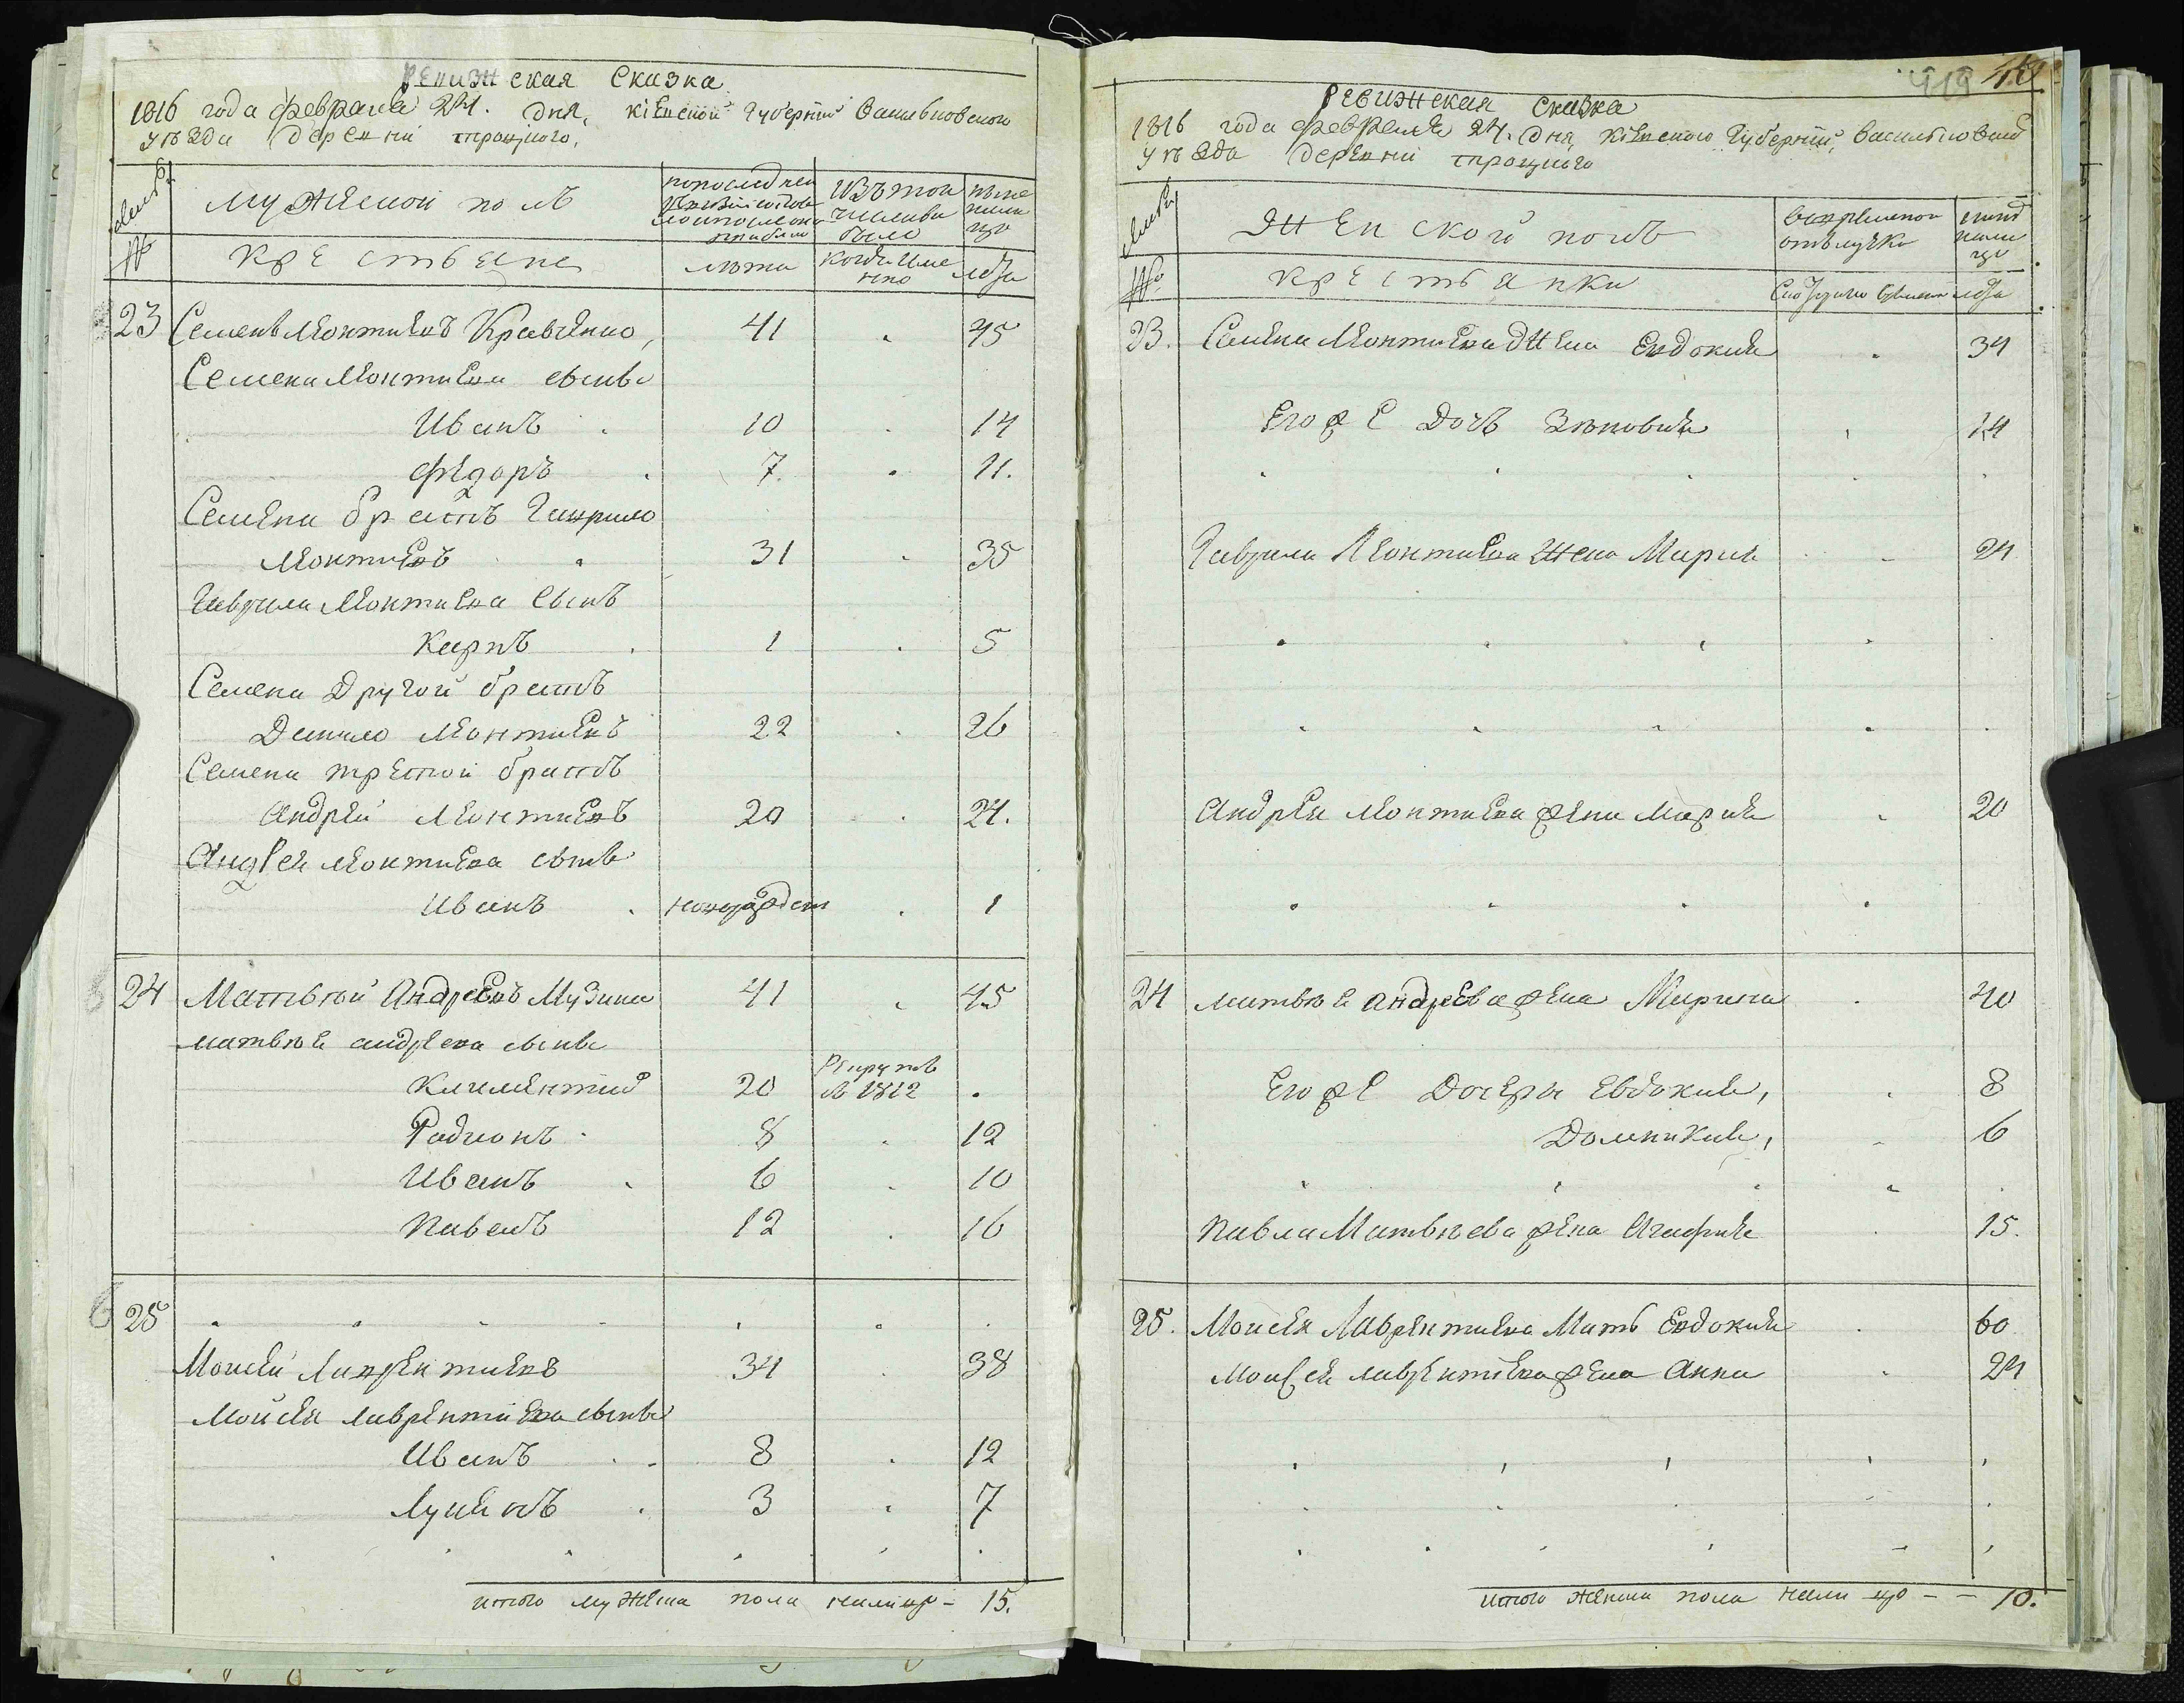 Ревижская Сказка
1816 года февраля 24. дня, Кіевской Губерніи Васильковского
уѣзда деревни троцкого,
Мужеской полъ
по последней
Изъ того
числа вы
было
ныне
на ли
цо
№
Крестьяне
лѣта
когда име
нно
лѣта
23 Семенъ Леонтиевъ Кравченко, 41 45
Семена Леонтиева сыны
Иванъ 10 14
Федоръ 7. 11.
Семена братъ Гаврило
Леонтиевъ 31 35
Гаврила Леонтиева сынъ
Карпъ 1 5
Семена другой братъ
Данило Леонтиевъ 22 26
Семена третой братъ
Андрей Леонтиевъ 20 24.
Андрея Леонтиева сынъ
Иванъ новорожден 1
24 Матвѣй Андреевъ Музика 41 45
матвѣя андреева сыны
Климентий 20 Рекрутъ
въ 1812
Радионъ 8 12
Иванъ 6 10
Павелъ 12 16
25
Моисей Лаврентиевъ 34 38
Мойсея лаврентиева сыны
Иванъ 8 12
Лукянъ 3 7
итого мужеска пола налицо - 15.
Ревижская Сказка
1816 года февраля 24. дня, Кіевского Губерніи, Васильковской
уѣзда деревни троцкого
Женской полъ
во временной
отълучке
ныне
нали
цо
№
крестьянки
Скотораго времени лѣта
23. Семена Леонтиева жена Евдокия 34
Его же Дочь Зѣновия 14
Гаврила Леонтиева жена Мария 24
Андрея Леонтиева жена Мария 20
24 матвѣя андреева жена Марина 40
Его же Дочеры Евдокия, 8
Домникия, 6
Павла Матвѣева жена Агафия 15.
25. Моисея Лаврентиева Мать Евдокия 60
Моисея лаврентиева жена Анна 24
итого женска пола нали цо - - 10.